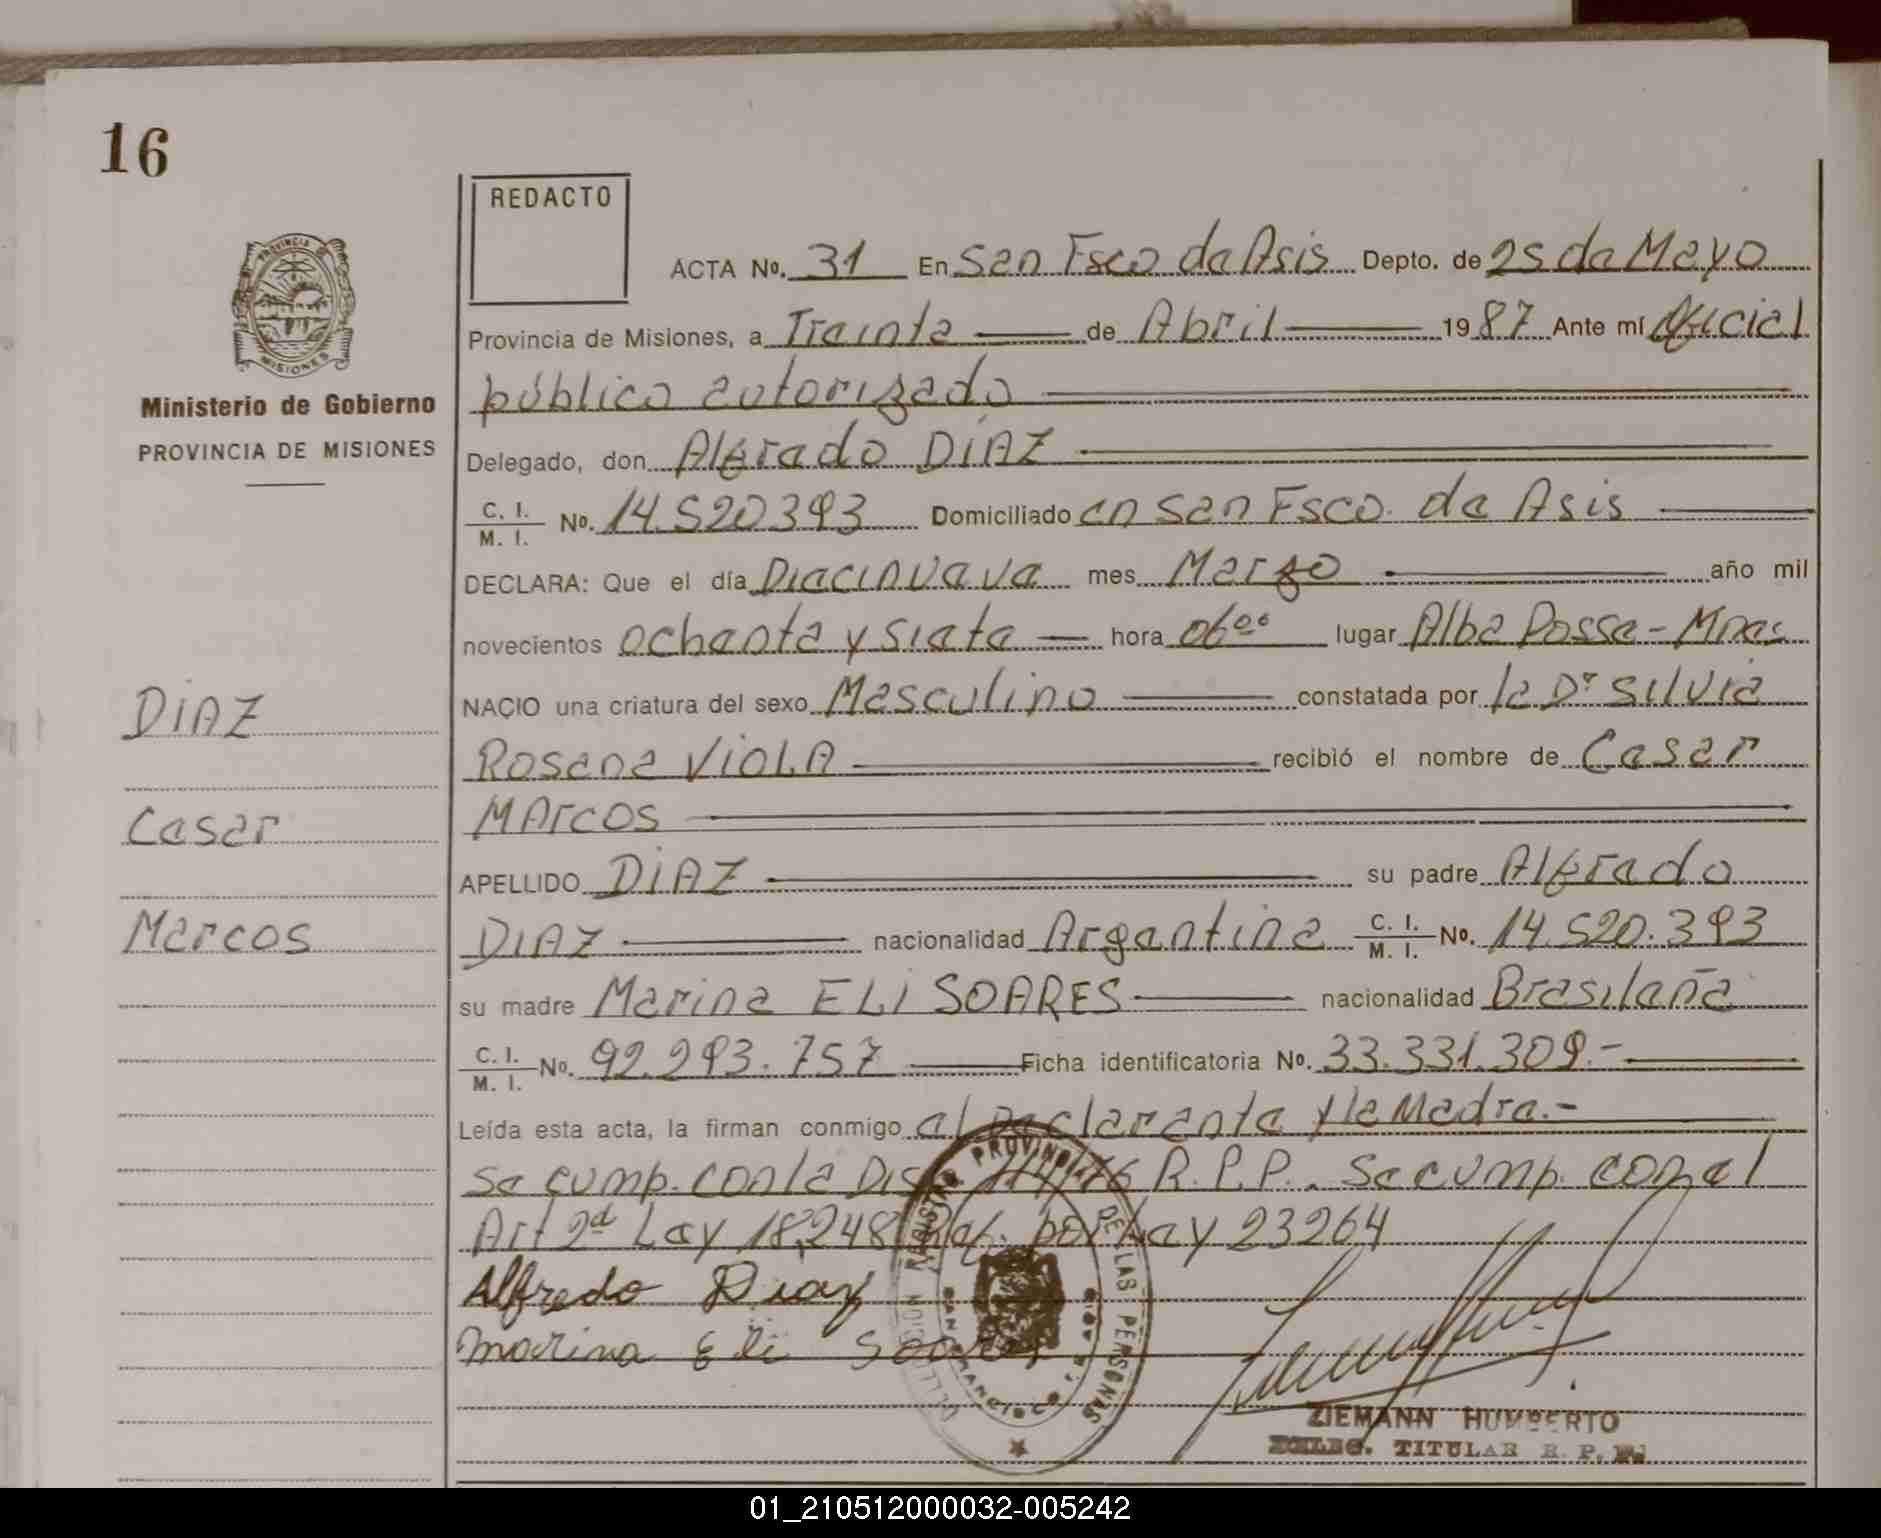 16
REDACTO
PROVINCIA DE
MISIONES
Ministerio de Gobierno
PROVINCIA DE MISIONES
ACTA No. 31 En San Fsco de Asis Depto. de 25 de Mayo
Provincia de Misiones, a Treinta de Abril 1987 Ante mí Oficial
público autorizado
Delegado, don Alfredo DIAZ
C. I. / M. I. No. 14.520393 Domiciliado en San Fsco. de Asis
DECLARA: Que el día Diecinueve mes Marzo año mil
novecientos ochenta y siete hora 06⁰⁰ lugar Alba Posse - Mnes
NACIO una criatura del sexo Masculino constatada por la Dr Silvia
Rosana VIOLA recibió el nombre de Cesar
MArcos
APELLIDO DIAZ su padre Alfredo
DIAZ nacionalidad Argentina C. I. / M. I. No. 14.520.393
su madre Marina ELI SOARES nacionalidad Brasileña
C. I. / M. I. No. 92.293.757 Ficha identificatoria No. 33.331.309.-
Leída esta acta, la firman conmigo el Declarante y la Madre.-
Se cump. con la Dis R.P.P. . Se cump. con el
Art 2d Ley 18,248 por Ley 23264
Alfredo Diaz
marina Eli Soares
DIAZ
Cesar
Marcos
PROVINCIAL DE LAS PERSONAS
ZIEMANN HUMBERTO
DELEG. TITULAR R. P. P.
01_210512000032-005242